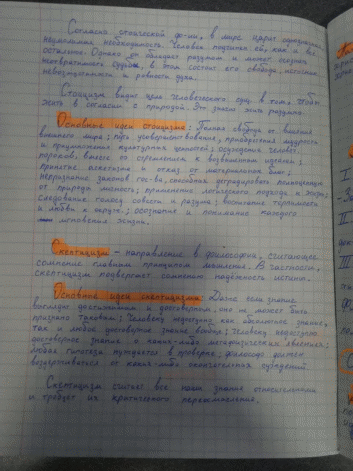 Согласно стоической ф-ии, в мире царит
неумолимая необходимость. Человек подчинён ей, как и всё
остальное. Однако он обладает разумом и может осознать
неотвратимость судьбы, в этом состоит его свобода,
невозмутимость и ровность духа.
Стоицизм видит цель человеческого сущ. в том, чтобы
жить в согласии с природой. Это значит жить разумно.
Основные идеи стоицизма: Полная свобода от влияния
внешнего мира; путь усовершенствования, приобретения мудрости
и приумножения культурных ценностей; осуждение человеч.
пороков, вместе со стремлением к возвышенным идеалам;
принятие аскетизма и отказ от материальных благ;
непризнание законов гос-ва, способных ограничить полноценную
от природы личность; применение логического подхода к миру;
следование голосу совести и разума; воспитание терпимости
и любви к окруж.; осознание и понимание каждого
мгновения жизни.
Скептицизм - направление в философии, считающее
сомнение главным принципом мышления. В частности,
скептицизм подвергает сомнению надёжность истины.
Основные идеи скептицизма: Даже если знание
выглядит достижимым и достоверным, оно не может быть
признано таковым; Человеку недоступно как абсолютное знание,
так и любое достоверное знание вообще; Человеку недоступно
достоверное знание о каких-либо метафизических явлениях;
любая гипотеза нуждается в проверке; философ должен
воздерживаться от каких-либо окончательных суждений.
Скептицизм считает все наши знания относительными
и требует их критического переосмысления.